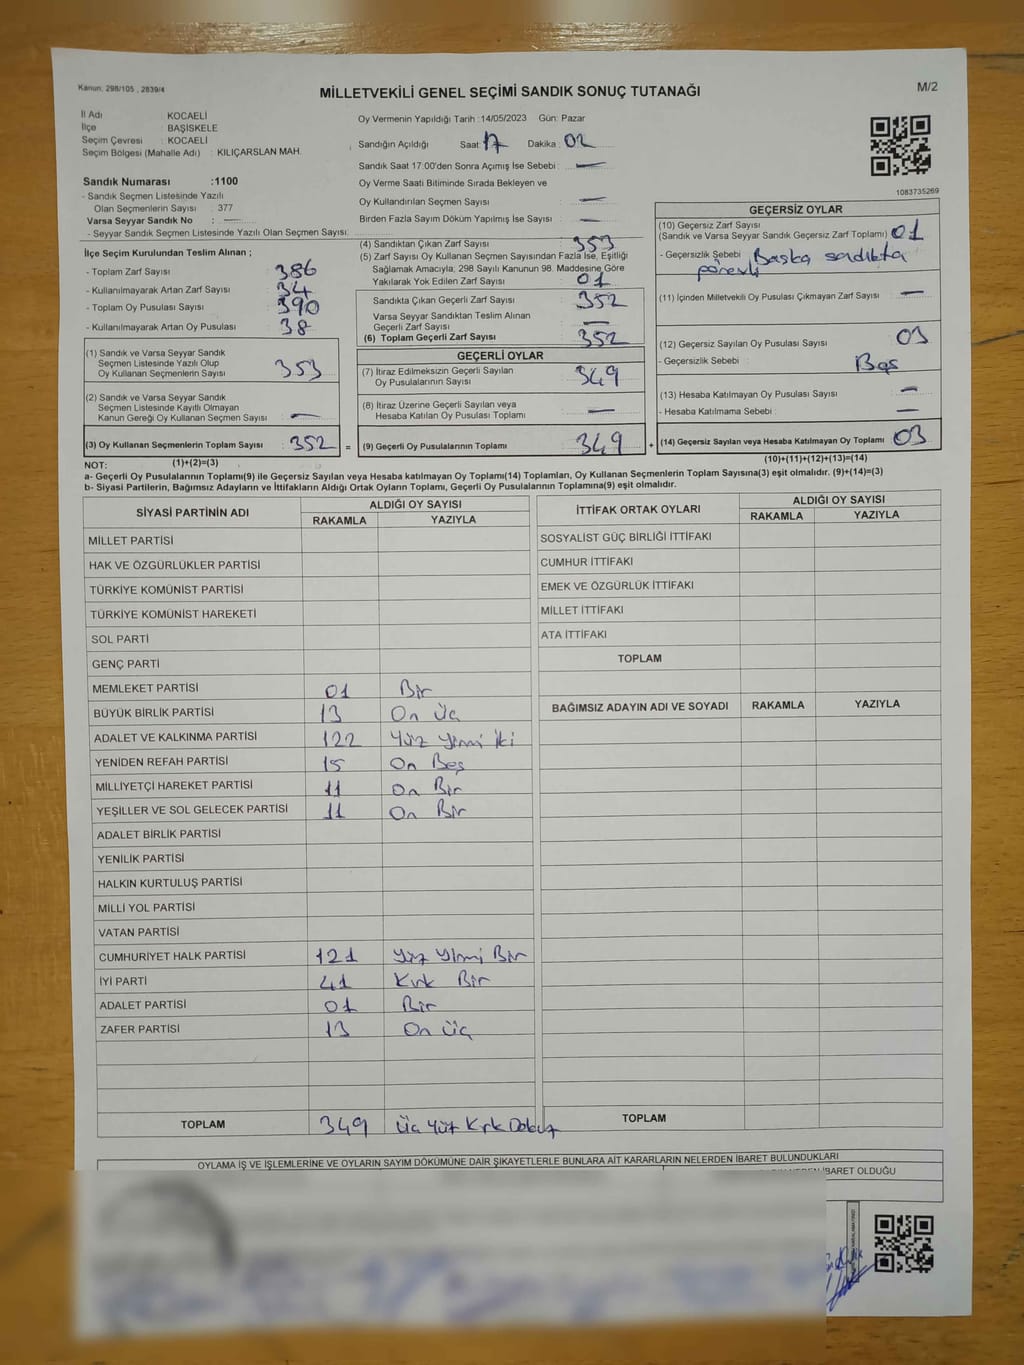 Kanun, 298/105 , 2839/4
MİLLETVEKİLİ GENEL SEÇİMİ SANDIK SONUÇ TUTANAĞI
M/2
İl Adı KOCAELİ
İlçe : BAŞİSKELE
Seçim Çevresi : KOCAELİ
Seçim Bölgesi (Mahalle Adı) : KILIÇARSLAN MAH.
Sandık Numarası :1100
- Sandık Seçmen Listesinde Yazılı
Olan Seçmenlerin Sayısı : 377
Varsa Seyyar Sandık No : —
- Seyyar Sandık Seçmen Listesinde Yazılı Olan Seçmen Sayısı:
Oy Vermenin Yapıldığı Tarih :14/05/2023 Gün: Pazar
Sandığın Açıldığı Saat: 17 Dakika: 02
Sandık Saat 17:00'den Sonra Açımış İse Sebebi : —
Oy Verme Saati Bitiminde Sırada Bekleyen ve
Oy Kullandırılan Seçmen Sayısı : —
Birden Fazla Sayım Döküm Yapılmış İse Sayısı : —
1083735269
İlçe Seçim Kurulundan Teslim Alınan ;
- Toplam Zarf Sayısı : 386
- Kullanılmayarak Artan Zarf Sayısı : 34
- Toplam Oy Pusulası : 390
- Kullanılmayarak Artan Oy Pusulası : 38
(1) Sandık ve Varsa Seyyar Sandık
Seçmen Listesinde Yazılı Olup
Oy Kullanan Seçmenlerin Sayısı : 353
(2) Sandık ve Varsa Seyyar Sandık
Seçmen Listesinde Kayıtlı Olmayan
Kanun Gereği Oy Kullanan Seçmen Sayısı : —
(3) Oy Kullanan Seçmenlerin Toplam Sayısı : 352 =
(1)+(2)=(3)
(4) Sandıktan Çıkan Zarf Sayısı : 353
(5) Zarf Sayısı Oy Kullanan Seçmen Sayısından Fazla İse, Eşitliği
Sağlamak Amacıyla; 298 Sayılı Kanunun 98. Maddesine Göre
Yakılarak Yok Edilen Zarf Sayısı : 01
Sandıkta Çıkan Geçerli Zarf Sayısı : 352
Varsa Seyyar Sandıktan Teslim Alınan
Geçerli Zarf Sayısı : —
(6) Toplam Geçerli Zarf Sayısı : 352
GEÇERLİ OYLAR
(7) İtiraz Edilmeksizin Geçerli Sayılan
Oy Pusulalarının Sayısı : 349
(8) İtiraz Üzerine Geçerli Sayılan veya
Hesaba Katılan Oy Pusulası Toplamı : —
(9) Geçerli Oy Pusulalarının Toplamı : 349 +
GEÇERSİZ OYLAR
(10) Geçersiz Zarf Sayısı
(Sandık ve Varsa Seyyar Sandık Geçersiz Zarf Toplamı) : 01
- Geçersizlik Sebebi : Başka sandıkta
görevli
(11) İçinden Milletvekili Oy Pusulası Çıkmayan Zarf Sayısı : —
(12) Geçersiz Sayılan Oy Pusulası Sayısı : 03
- Geçersizlik Sebebi : Boş
(13) Hesaba Katılmayan Oy Pusulası Sayısı : —
- Hesaba Katılmama Sebebi : —
(14) Geçersiz Sayılan veya Hesaba Katılmayan Oy Toplamı : 03
(10)+(11)+(12)+(13)=(14)
NOT:
a- Geçerli Oy Pusulalarının Toplamı(9) ile Geçersiz Sayılan veya Hesaba katılmayan Oy Toplamı(14) Toplamları, Oy Kullanan Seçmenlerin Toplam Sayısına(3) eşit olmalıdır. (9)+(14)=(3)
b- Siyasi Partilerin, Bağımsız Adayların ve İttifakların Aldığı Ortak Oyların Toplamı, Geçerli Oy Pusulalarının Toplamına(9) eşit olmalıdır.
SİYASİ PARTİNİN ADI ALDIĞI OY SAYISI
RAKAMLA YAZIYLA
MİLLET PARTİSİ
HAK VE ÖZGÜRLÜKLER PARTİSİ
TÜRKİYE KOMÜNİST PARTİSİ
TÜRKİYE KOMÜNİST HAREKETİ
SOL PARTİ
GENÇ PARTİ
MEMLEKET PARTİSİ 01 Bir
BÜYÜK BİRLİK PARTİSİ 13 On Üç
ADALET VE KALKINMA PARTİSİ 122 Yüz Yirmi İki
YENİDEN REFAH PARTİSİ 15 On Beş
MİLLİYETÇİ HAREKET PARTİSİ 11 On Bir
YEŞİLLER VE SOL GELECEK PARTİSİ 11 On Bir
ADALET BİRLİK PARTİSİ
YENİLİK PARTİSİ
HALKIN KURTULUŞ PARTİSİ
MİLLİ YOL PARTİSİ
VATAN PARTİSİ
CUMHURİYET HALK PARTİSİ 121 Yüz Yirmi Bir
İYİ PARTİ 41 Kırk Bir
ADALET PARTİSİ 01 Bir
ZAFER PARTİSİ 13 On Üç
TOPLAM 349 Üç Yüz Kırk Dokuz
İTTİFAK ORTAK OYLARI ALDIĞI OY SAYISI
RAKAMLA YAZIYLA
SOSYALİST GÜÇ BİRLİĞİ İTTİFAKI
CUMHUR İTTİFAKI
EMEK VE ÖZGÜRLÜK İTTİFAKI
MİLLET İTTİFAKI
ATA İTTİFAKI
TOPLAM
BAĞIMSIZ ADAYIN ADI VE SOYADI RAKAMLA YAZIYLA
TOPLAM
OYLAMA İŞ VE İŞLEMLERİNE VE OYLARIN SAYIM DÖKÜMÜNE DAİR ŞİKAYETLERLE BUNLARA AİT KARARLARIN NELERDEN İBARET BULUNDUKLARI
İBARET OLDUĞU